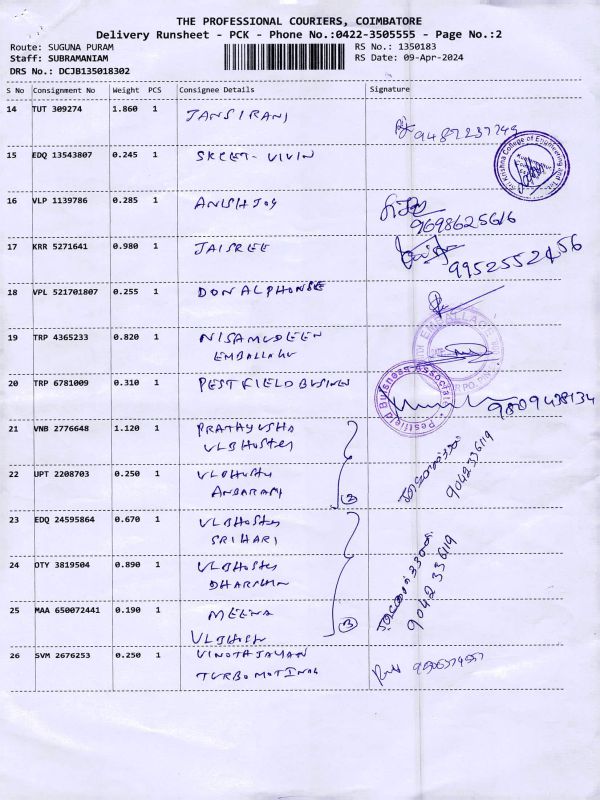 THE PROFESSIONAL COURIERS, COIMBATORE
Delivery Runsheet - PCK - Phone No.:0422-3505555 - Page No.:2
Route: SUGUNA PURAM
RS No.: 1350183
Staff: SUBRAMANIAM
RS Date: 09-Apr-2024
DRS No.: DCJB135018302
S No Consignment No Weight PCS Consignee Details Signature
14 TUT 309274 1.860 1 JANSIRANI
9487237749
15 EDQ 13543807 0.245 1 SKCET-VIVIN
Sri Krishna College of Engineering
16 VLP 1139786 0.285 1 ANISHJOY
9698625616
17 KRR 5271641 0.980 1 JAISREE
9952552456
18 VPL 521701807 0.255 1 DONALPHONSE
19 TRP 4365233 0.820 1 NISAMUDEEN
EMBALLAGE
20 TRP 6781009 0.310 1 PESTFIELDBUSINES
Pestfield Business Associate
9809438134
21 VNB 2776648 1.120 1 PRATHYUSHA
VLBHostey
22 UPT 2208703 0.250 1 VLBHostey
2
9042336119
23 EDQ 24595864 0.670 1 VLBHostey
SRIHARI
24 OTY 3819504 0.890 1 VLBHostey
DHARSHN
9042336119
25 MAA 650072441 0.190 1 MEENA
VLBHosh
3
26 SVM 2676253 0.250 1 VINOTHJAYAN